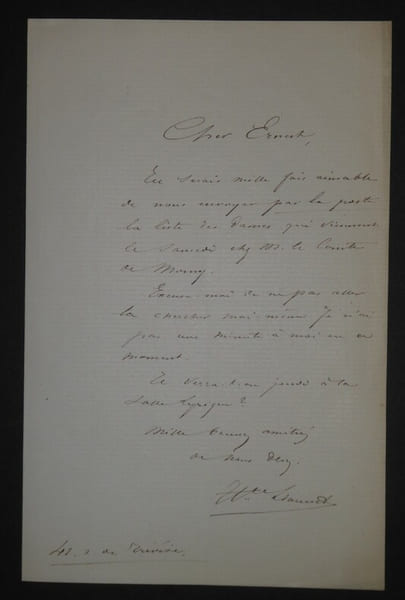 Cher Ernest,
Tu serais mille fois aimable
de nous envoyer par la poste
la liste des Dames qui viennent
le Samedi chez M. le Comte
de Morny.
Excuse moi de ne pas aller
la chercher moi même je n'ai
pas une minute à moi en ce
moment.
Te verra-t-on jeudi à la
Salle Lyrique ?
Mille bonnes amitiés
de nous deux.
42. r. de Trévise.